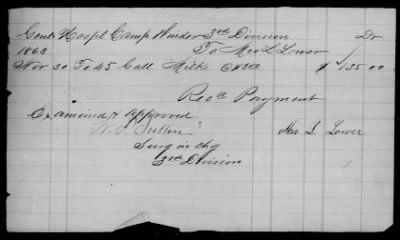 Genl Hospl Camp Winder 3rd Division Dr
1863 To Mrs L Lower
Nov 30 To 45 Gall Milk @ $3.00 $ 135 00
Recd Payment
Examined & Approved
Mrs. L. Lower
Surg in chg
3rd Division